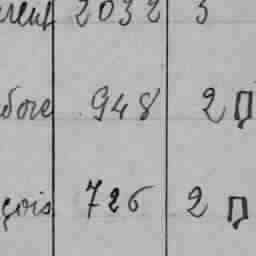 2032 3
dore 948 2
çois 726 2